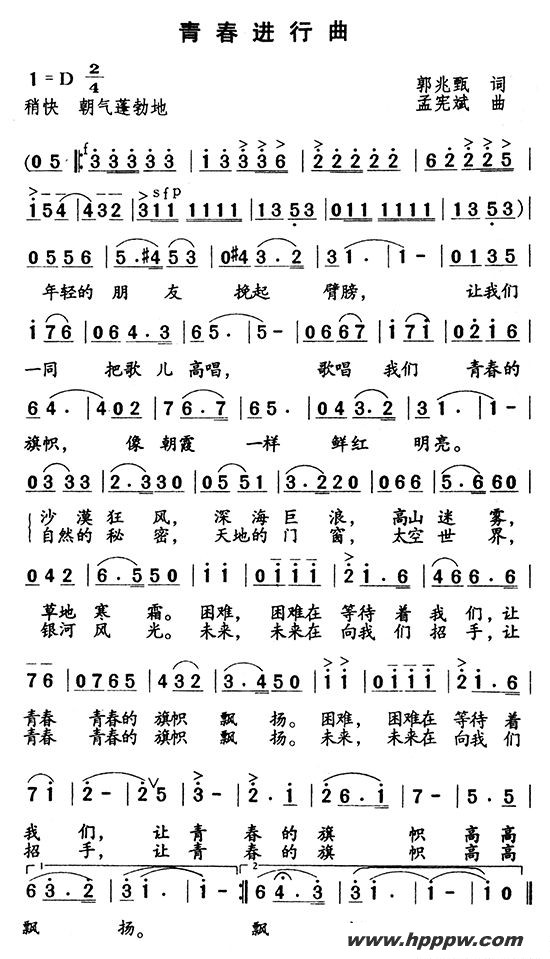 青春进行曲
1=D 2/4
郭兆甄 词
稍快 朝气蓬勃地
孟宪斌 曲
(05 f 33333 | 13336 | 222222 | 622225 |
154 | 432 | 311 1111 | 1353 | 011 1111 | 1353)
sfp
0556 | 5.#453 | 0#43.2 | 31. | 1- | 0135 |
年轻的 朋友 挽起 臂膀, 让我们
176 | 064.3 | 65. | 5- | 0667 | 171 | 0216 |
一同 把歌儿高唱, 歌唱 我们 青春的
64. | 402 | 76.7 | 65. | 043.2 | 31. | 1- |
旗帜, 像朝霞 一样 鲜红 明亮。
0333 | 2.330 | 0551 | 3.220 | 066 | 5.660 |
沙漠狂风, 深海巨浪, 高山迷雾,
自然的秘密, 天地的门窗, 太空世界,
042 | 6.550 | 11 | 0111 | 21.6 | 466.6 |
草地寒霜。困难, 困难在 等待着我们,让
银河风光。未来, 未来在 向我们招手,让
76 | 0765 | 432 | 3.450 | 11 | 0111 | 21.6 |
青春 青春的旗帜 飘扬。困难, 困难在 等待着
青春 青春的旗帜 飘扬。未来, 未来在 向我们
71 | 2- | 25 | 3- | 2.1 | 26.1 | 7- | 5.5 |
我们, 让青 春的旗 帜 高高
招手, 让青 春的旗 帜 高高
1 2
63.2 | 31. | 1- :| 64.3 | 31. | 1- | 10 |
飘 扬。 飘
www.hpppw.com